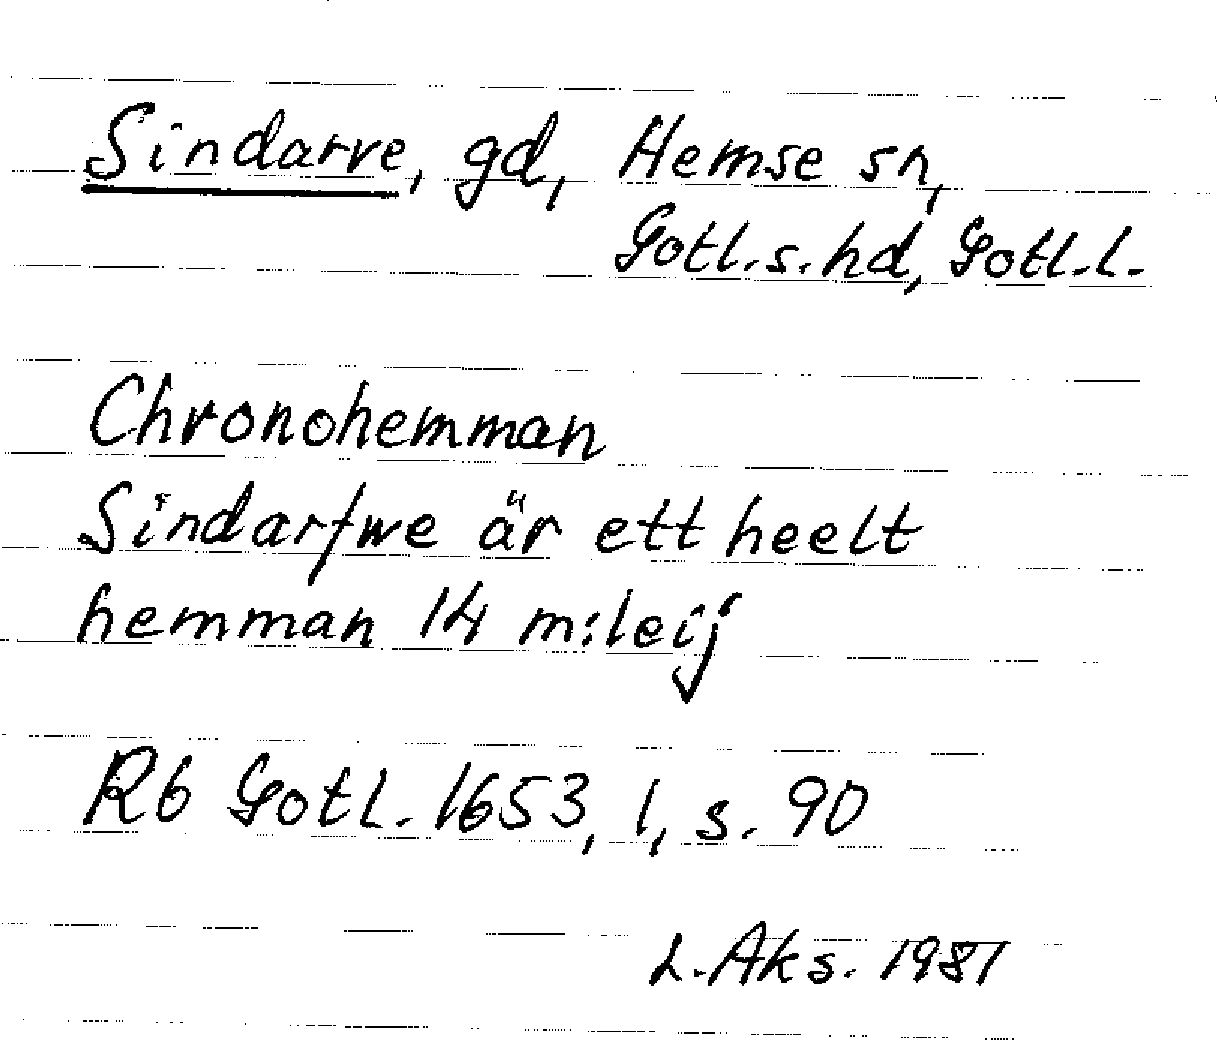 Sindarve, gd, Hemse sn,
Gotl.s.hd, Gotl.l.
Chronohemman
Sindarfwe är ett heelt
hemman 14 m:leij
Rb Gotl. 1653, 1, s. 90
L. Aks. 1981